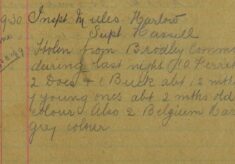 930 Inspt Miles. Harlow
Supt Cassell
Stolen from Broxley Common
during last night P.O. Ferris
2 Does & 1 Buck abt 12 mths
4 young ones abt 2 mths old
colour. Also 2 Belgium Hares
grey colour